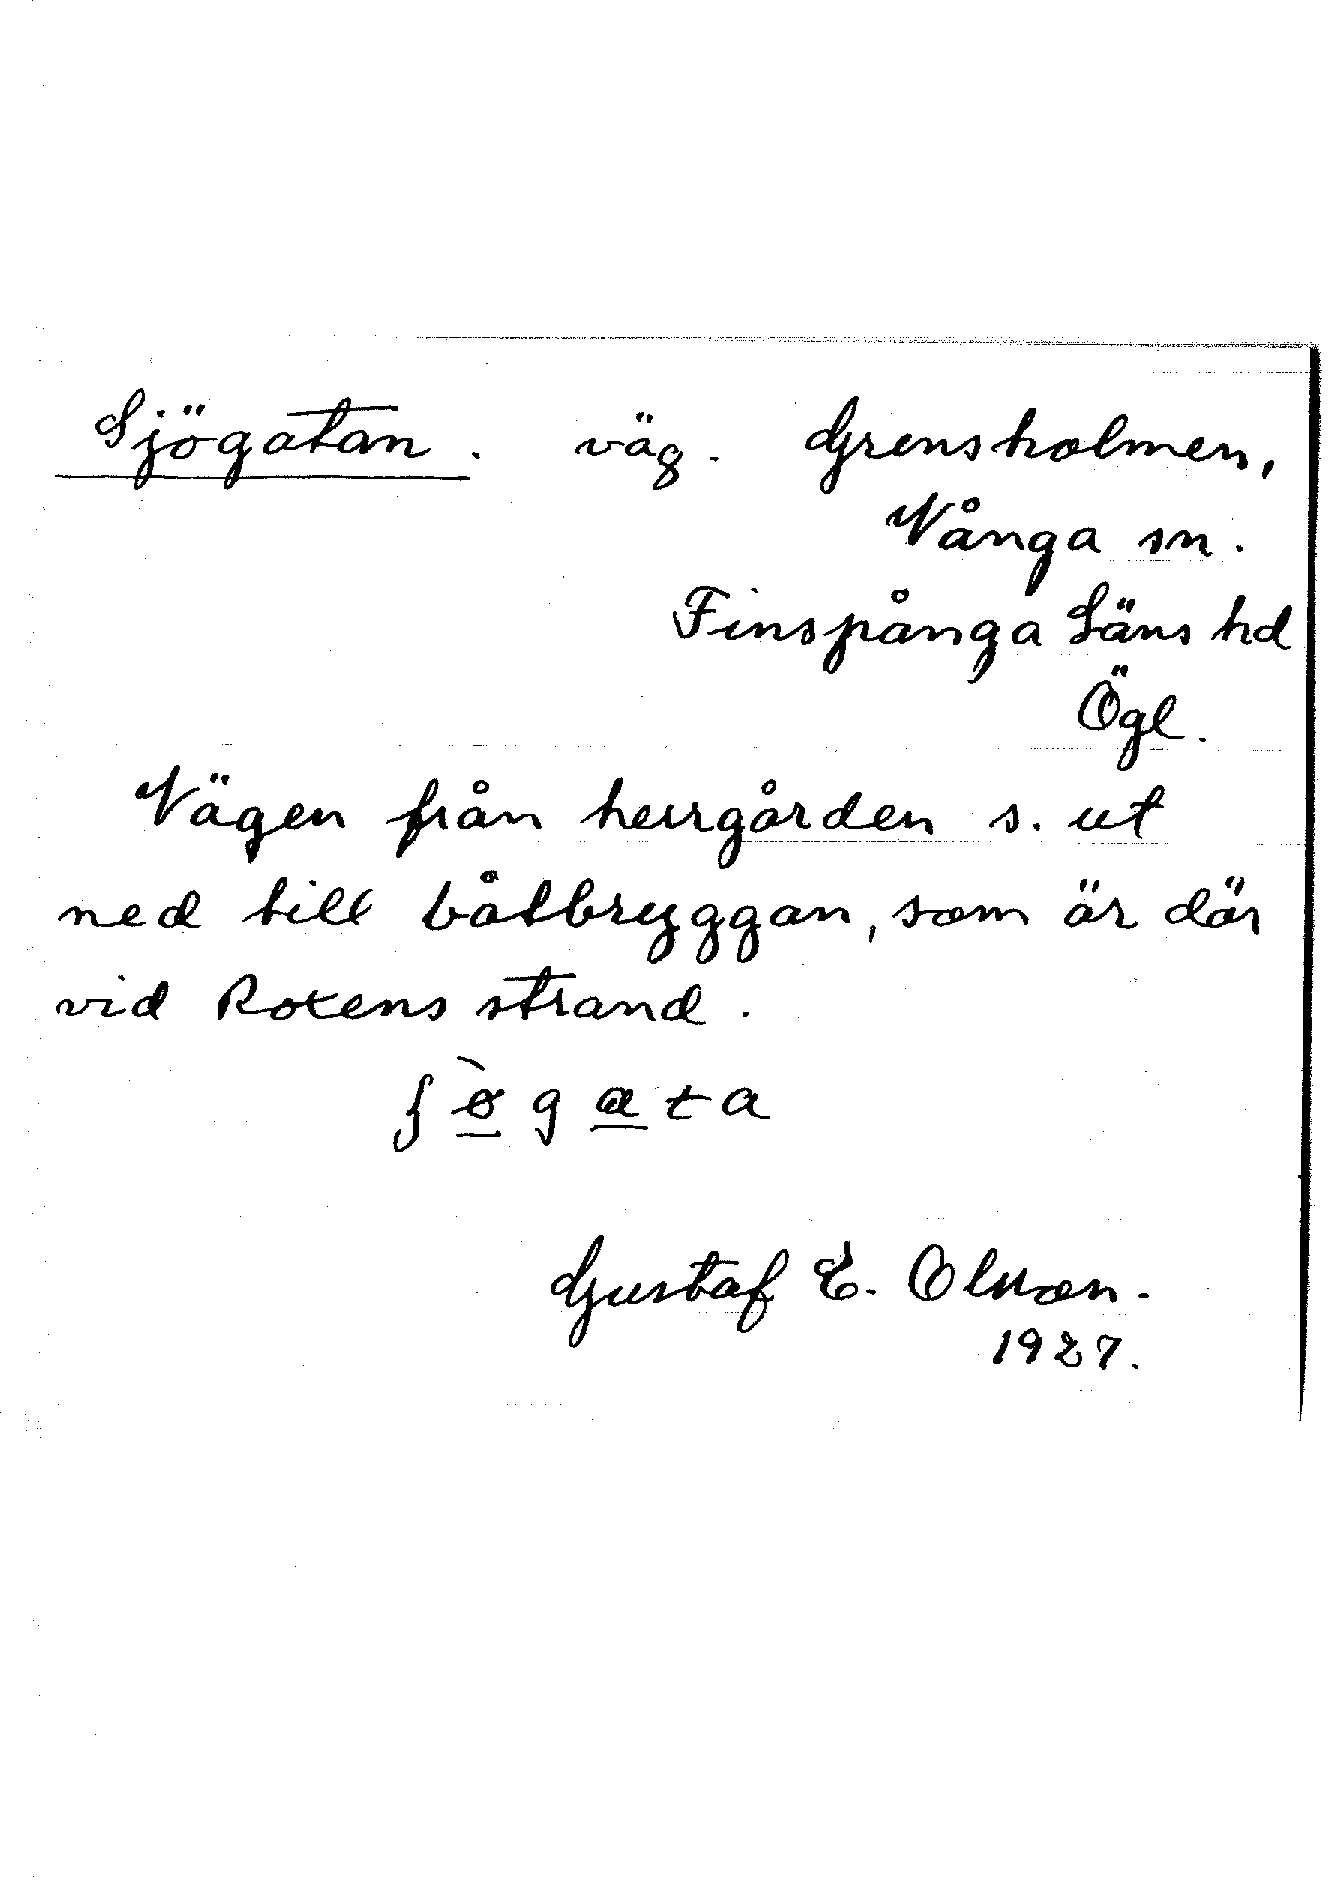 Sjögatan. väg. Grensholmen,
Vånga sn.
Finspånga Läns hd
Ögl.
Vägen från herrgården s. ut
ned till båtbryggan, som är där
vid Roxens strand.
ʃø̀gata
Gustaf E. Olsson.
1927.